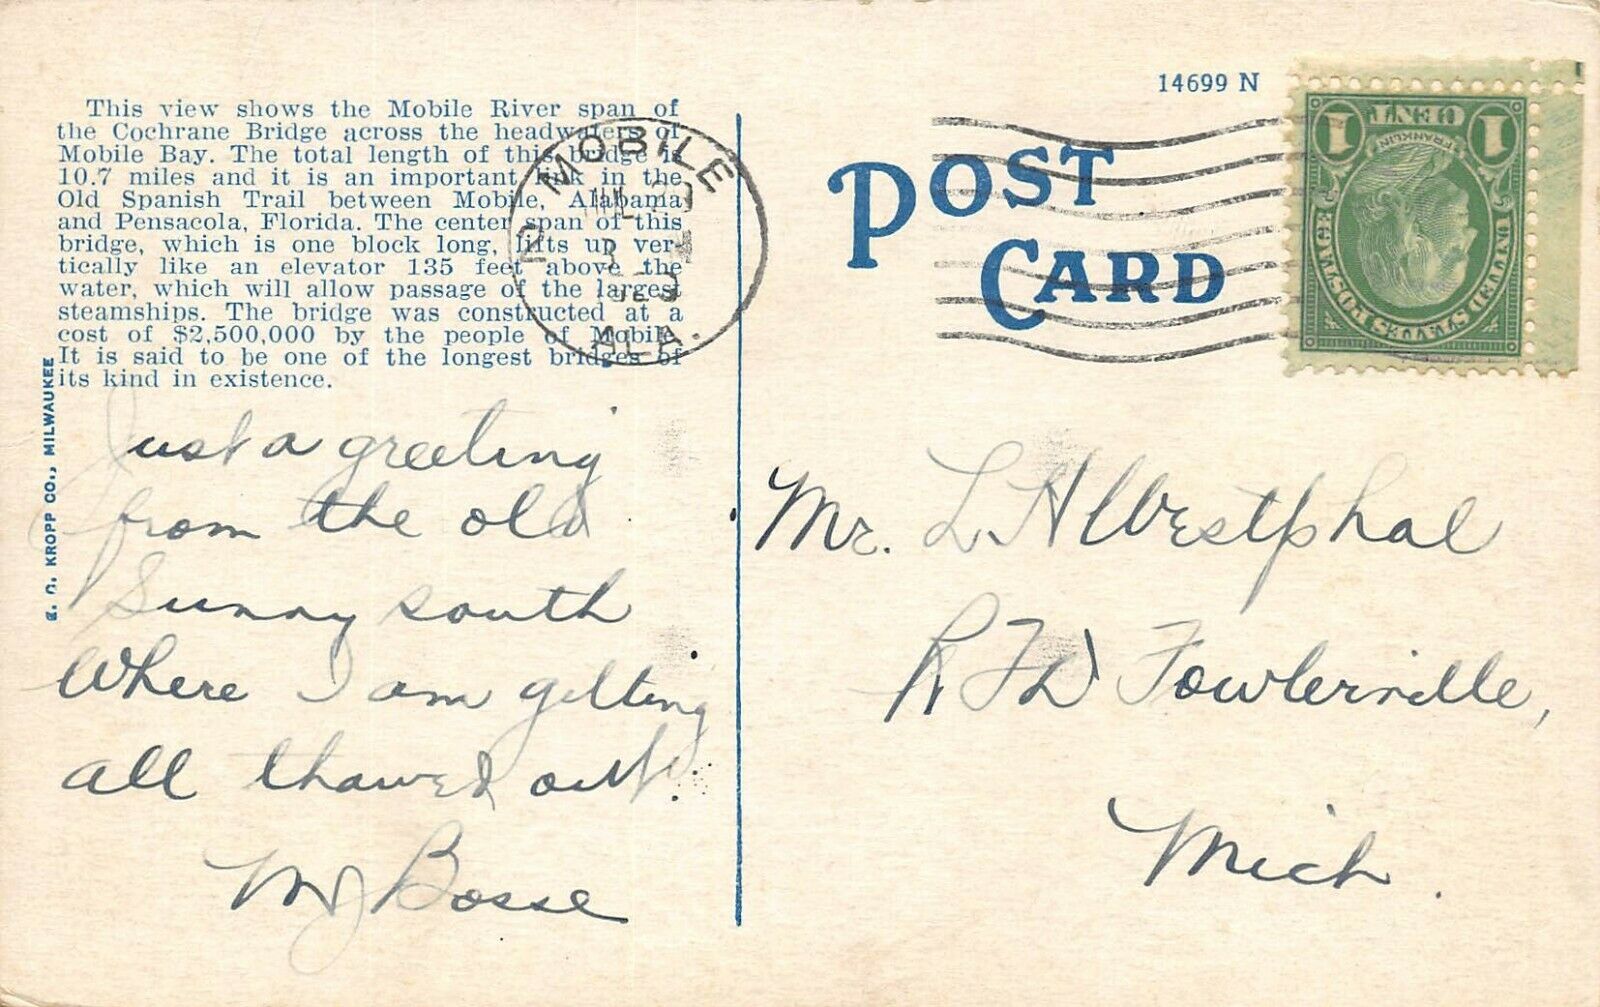 This view shows the Mobile River span of
the Cochrane Bridge across the headwaters of
Mobile Bay. The total length of this bridge is
10.7 miles and it is an important link in the
Old Spanish Trail between Mobile, Alabama
and Pensacola, Florida. The center span of this
bridge, which is one block long, lifts up ver-
tically like an elevator 135 feet above the
water, which will allow passage of the largest
steamships. The bridge was constructed at a
cost of $2,500,000 by the people of Mobile.
It is said to be one of the longest bridges of
its kind in existence.
E. C. KROPP CO., MILWAUKEE
Just a greeting
from the old
Sunny south
Where I am getting
all thawed out.
MJ Bosse
MOBILE
ALA.
14699 N
POST
CARD
UNITED STATES POSTAGE
FRANKLIN
1 CENT 1
Mr. L H Westphal
R F D Fowlerville,
Mich.